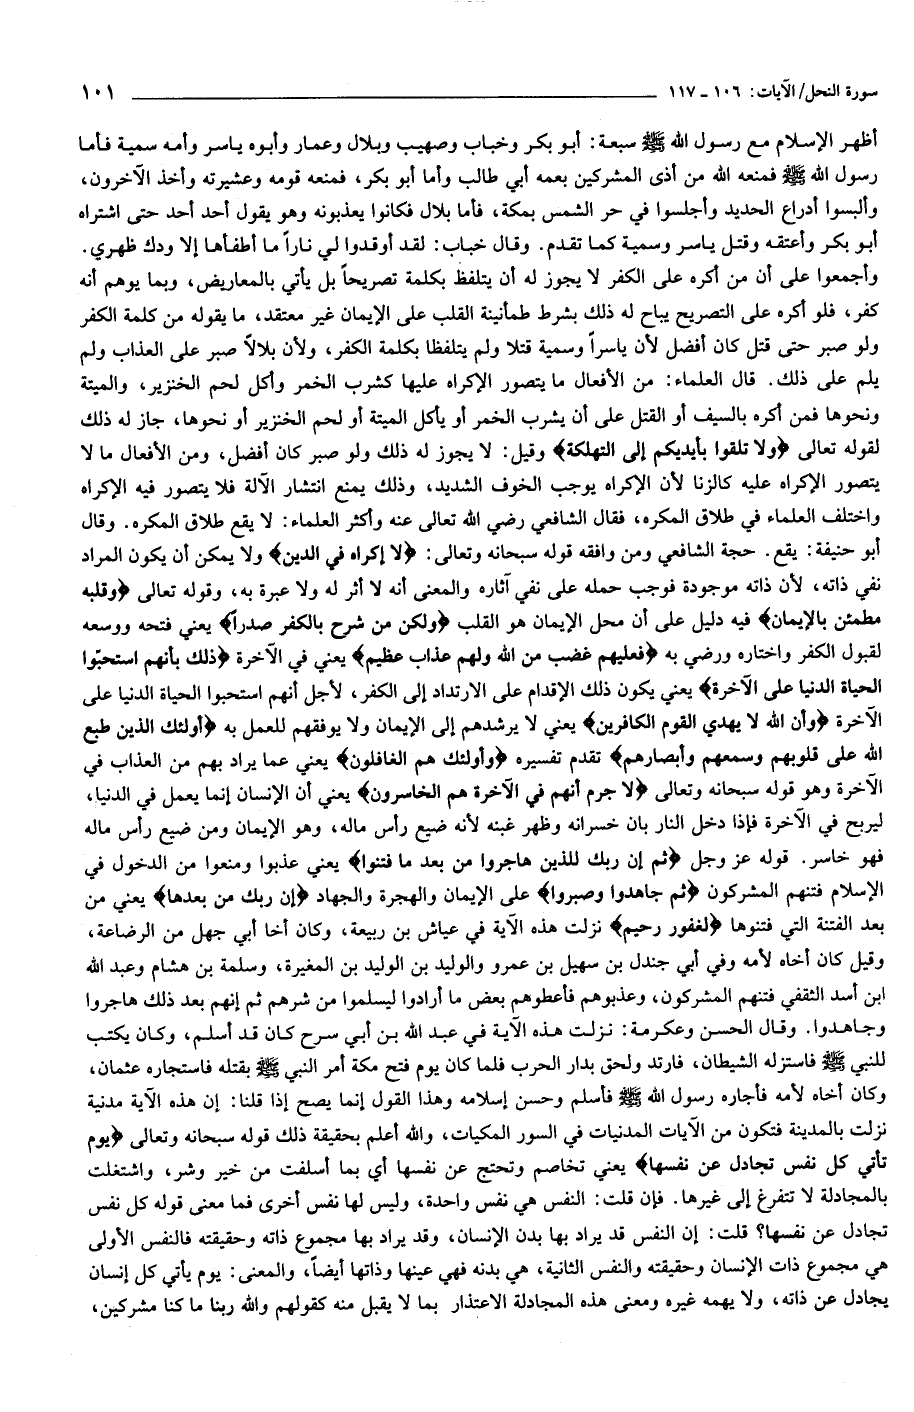 سورة النحل/ الآيات: ١٠٦ ـ ١١٧ ١٠١
أظهر الإسلام مع رسول الله ﷺ سبعة: أبو بكر وخباب وصهيب وبلال وعمار وأبوه ياسر وأمه سمية فأما
رسول الله ﷺ فمنعه الله من أذى المشركين بعمه أبي طالب وأما أبو بكر، فمنعه قومه وعشيرته وأخذ الآخرون،
وألبسوا أدراع الحديد وأجلسوا في حر الشمس بمكة، فأما بلال فكانوا يعذبونه وهو يقول أحد أحد حتى اشتراه
أبو بكر وأعتقه وقتل ياسر وسمية كما تقدم. وقال خباب: لقد أوقدوا لي ناراً ما أطفأها إلا ودك ظهري.
وأجمعوا على أن من أكره على الكفر لا يجوز له أن يتلفظ بكلمة تصريحاً بل يأتي بالمعاريض، وبما يوهم أنه
كفر، فلو أكره على التصريح يباح له ذلك بشرط طمأنينة القلب على الإيمان غير معتقد، ما يقوله من كلمة الكفر
ولو صبر حتى قتل كان أفضل لأن ياسراً وسمية قتلا ولم يتلفظا بكلمة الكفر، ولأن بلالاً صبر على العذاب ولم
يلم على ذلك. قال العلماء: من الأفعال ما يتصور الإكراه عليها كشرب الخمر وأكل لحم الخنزير، والميتة
ونحوها فمن أكره بالسيف أو القتل على أن يشرب الخمر أو يأكل الميتة أو لحم الخنزير أو نحوها، جاز له ذلك
لقوله تعالى ﴿ولا تلقوا بأيديكم إلى التهلكة﴾ وقيل: لا يجوز له ذلك ولو صبر كان أفضل، ومن الأفعال ما لا
يتصور الإكراه عليه كالزنا لأن الإكراه يوجب الخوف الشديد، وذلك يمنع انتشار الآلة فلا يتصور فيه الإكراه
واختلف العلماء في طلاق المكره، فقال الشافعي رضي الله تعالى عنه وأكثر العلماء: لا يقع طلاق المكره. وقال
أبو حنيفة: يقع. حجة الشافعي ومن وافقه قوله سبحانه وتعالى: ﴿لا إكراه في الدين﴾ ولا يمكن أن يكون المراد
نفي ذاته، لأن ذاته موجودة فوجب حمله على نفي آثاره والمعنى أنه لا أثر له ولا عبرة به، وقوله تعالى ﴿وقلبه
مطمئن بالإيمان﴾ فيه دليل على أن محل الإيمان هو القلب ﴿ولكن من شرح بالكفر صدراً﴾ يعني فتحه ووسعه
لقبول الكفر واختاره ورضي به ﴿فعليهم غضب من الله ولهم عذاب عظيم﴾ يعني في الآخرة ﴿ذلك بأنهم استحبّوا
الحياة الدنيا على الآخرة﴾ يعني يكون ذلك الإقدام على الارتداد إلى الكفر، لأجل أنهم استحبوا الحياة الدنيا على
الآخرة ﴿وأن الله لا يهدي القوم الكافرين﴾ يعني لا يرشدهم إلى الإيمان ولا يوفقهم للعمل به ﴿أولئك الذين طبع
الله على قلوبهم وسمعهم وأبصارهم﴾ تقدم تفسيره ﴿وأولئك هم الغافلون﴾ يعني عما يراد بهم من العذاب في
الآخرة وهو قوله سبحانه وتعالى ﴿لا جرم أنهم في الآخرة هم الخاسرون﴾ يعني أن الإنسان إنما يعمل في الدنيا،
ليربح في الآخرة فإذا دخل النار بان خسرانه وظهر غبنه لأنه ضيع رأس ماله، وهو الإيمان ومن ضيع رأس ماله
فهو خاسر. قوله عز وجل ﴿ثم إن ربك للذين هاجروا من بعد ما فتنوا﴾ يعني عذبوا ومنعوا من الدخول في
الإسلام فتنهم المشركون ﴿ثم جاهدوا وصبروا﴾ على الإيمان والهجرة والجهاد ﴿إن ربك من بعدها﴾ يعني من
بعد الفتنة التي فتنوها ﴿لغفور رحيم﴾ نزلت هذه الآية في عياش بن ربيعة، وكان أخا أبي جهل من الرضاعة،
وقيل كان أخاه لأمه وفي أبي جندل بن سهيل بن عمرو والوليد بن الوليد بن المغيرة، وسلمة بن هشام وعبد الله
ابن أسد الثقفي فتنهم المشركون، وعذبوهم فأعطوهم بعض ما أرادوا ليسلموا من شرهم ثم إنهم بعد ذلك هاجروا
وجاهدوا. وقال الحسن وعكرمة: نزلت هذه الآية في عبد الله بن أبي سرح كان قد أسلم، وكان يكتب
للنبي ﷺ فاستزله الشيطان، فارتد ولحق بدار الحرب فلما كان يوم فتح مكة أمر النبي ﷺ بقتله فاستجاره عثمان،
وكان أخاه لأمه فأجاره رسول الله ﷺ فأسلم وحسن إسلامه وهذا القول إنما يصح إذا قلنا: إن هذه الآية مدنية
نزلت بالمدينة فتكون من الآيات المدنيات في السور المكيات، والله أعلم بحقيقة ذلك قوله سبحانه وتعالى ﴿يوم
تأتي كل نفس تجادل عن نفسها﴾ يعني تخاصم وتحتج عن نفسها أي بما أسلفت من خير وشر، واشتغلت
بالمجادلة لا تتفرغ إلى غيرها. فإن قلت: النفس هي نفس واحدة، وليس لها نفس أخرى فما معنى قوله كل نفس
تجادل عن نفسها؟ قلت: إن النفس قد يراد بها بدن الإنسان، وقد يراد بها مجموع ذاته وحقيقته فالنفس الأولى
هي مجموع ذات الإنسان وحقيقته والنفس الثانية، هي بدنه فهي عينها وذاتها أيضاً، والمعنى: يوم يأتي كل إنسان
يجادل عن ذاته، ولا يهمه غيره ومعنى هذه المجادلة الاعتذار بما لا يقبل منه كقولهم والله ربنا ما كنا مشركين،